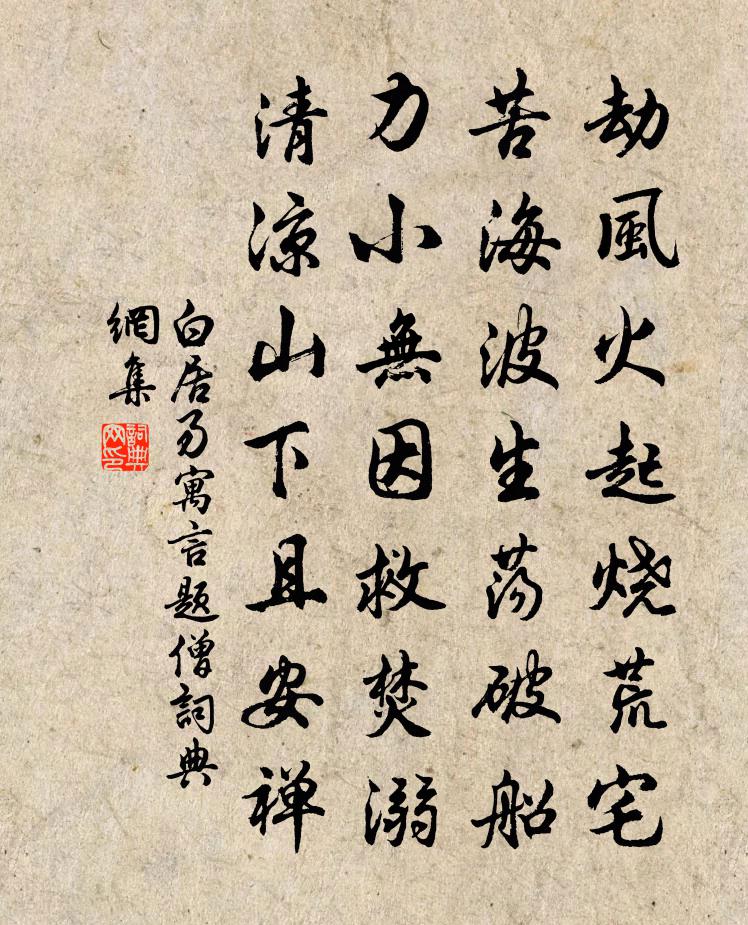 劫風火起烧荒宅
苦海波生荡破船
力小無因救焚溺
清凉山下且安禅
白居易寓言题僧詞典
網集
詞典
网印